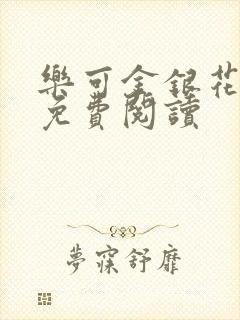 樂可金銀花
免費閱讀
夢寐舒靡